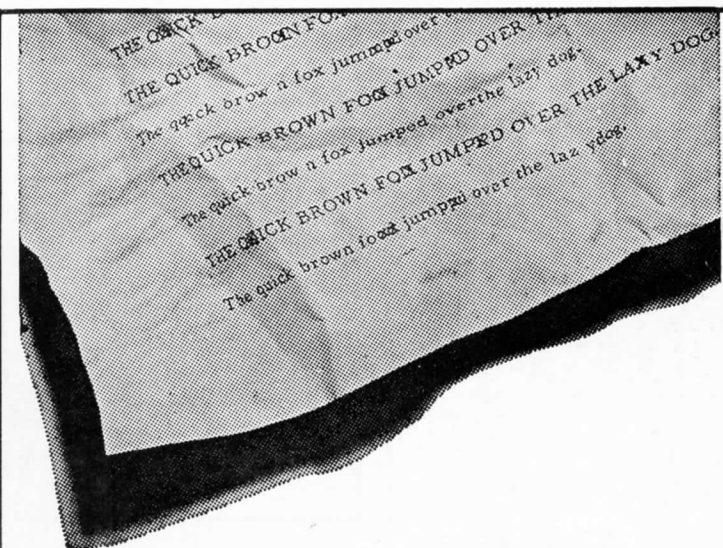 THE QUICK
THE QUICK BROWN FOX
The quick brow n fox jumped over
THE QUICK BROWN FOX JUMPED OVER THE
The quick brow n fox jumped overthe lazy dog.
THE QUICK BROWN FOX JUMPED OVER THE LAXY DOG.
The quick brown foxx jumped over the laz ydog.